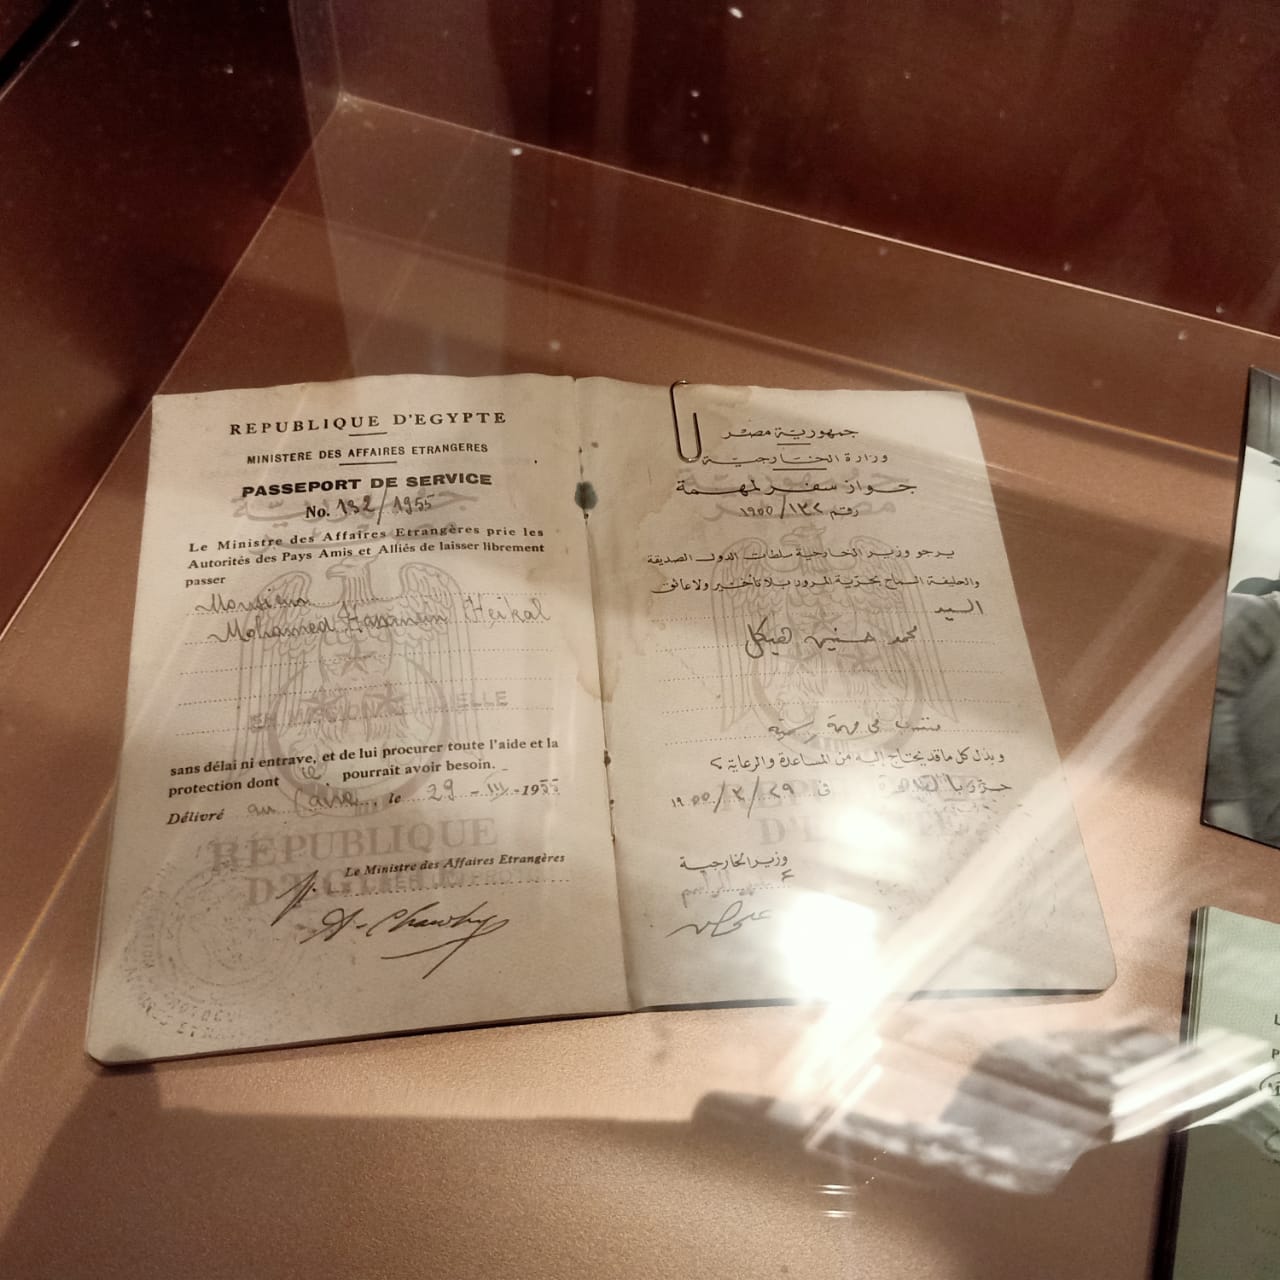 REPUBLIQUE D'EGYPTE
MINISTERE DES AFFAIRES ETRANGERES
PASSEPORT DE SERVICE
No. 132/1955
Le Ministre des Affaires Etrangères prie les
Autorités des Pays Amis et Alliés de laisser librement
passer
Monsieur
Mohamed Hassanein Heikal
EN MISSION OFFICIELLE
sans délai ni entrave, et de lui procurer toute l'aide et la
protection dont il pourrait avoir besoin.
Délivré au Caire, le 29 - III - 1955
RÉPUBLIQUE
Le Ministre des Affaires Etrangères
جمهورية مصر
وزارة الخارجية
جواز سفر لمهمة
رقم ١٣٢/١٩٥٥
يرجو وزير الخارجية سلطات الدول الصديقة
والحليفة السماح بحرية المرور بلا تأخير ولا عائق
السيد
محمد حسنين هيكل
منتدب فى مهمة رسمية
وبذل كل ما قد يحتاج إليه من المساعدة والرعاية ؟
حرر بالقاهرة فى ٢٩/٣/١٩٥٥
وزير الخارجية